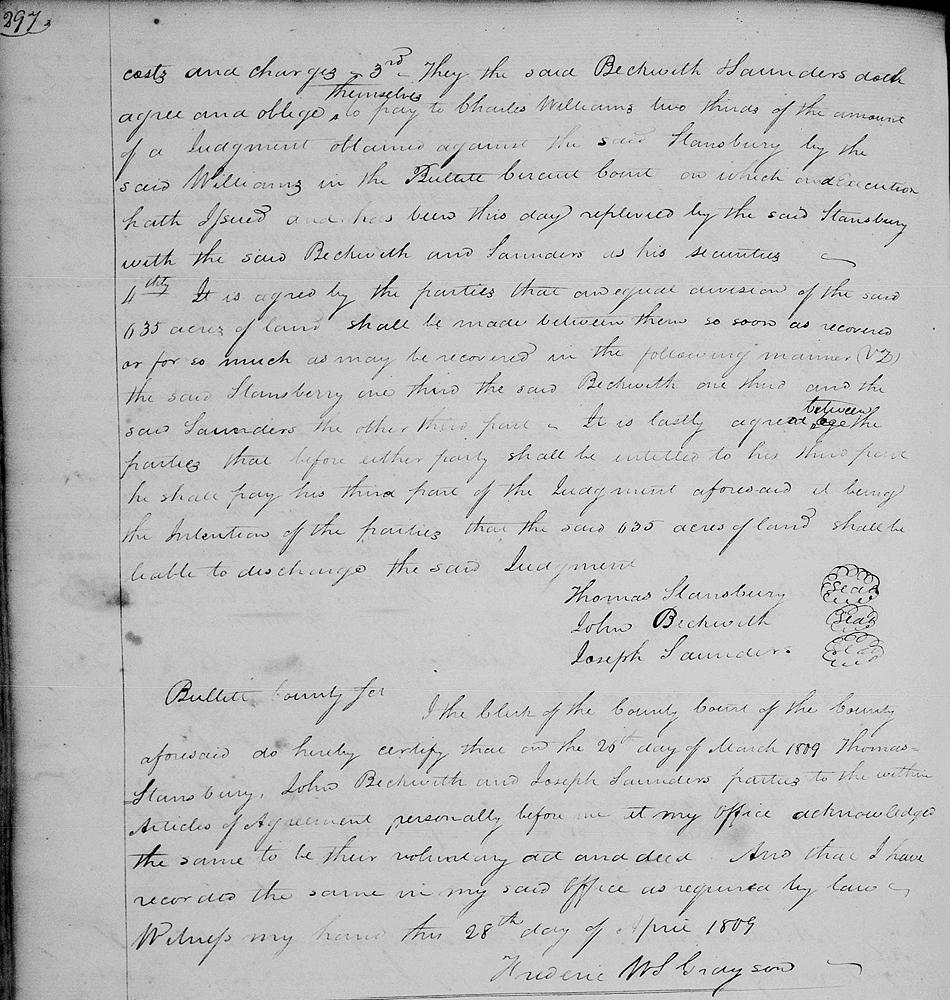 297.
costs and charges - 3rd - They the said Beckwith & Saunders doth
themselves
agree and oblige to pay to Charles Williams two thirds of the amount
of a Judgment obtained against the said Stansbury by the
said Williams in the Bullitt Circuit Court on which and Execution
hath Issued and has been this day replevied by the said Stansbury
with the said Beckwith and Saunders as his securities
4thly It is agreed by the parties that an equal division of the said
635 acres of land shall be made between them so soon as recovered
or for so much as may be recovered in the following manner (VZ)
the said Stansberry one third the said Beckwith one third and the
between
said Saunders the other third part - It is lastly agreed the
parties that before either party shall be intitled to his third part
he shall pay his third part of the Judgment aforesaid it being
the Intention of the parties that the said 635 acres of land shall be
leable to discharge the said Judgment
Thomas Stansbury Seal
John Beckwith Seal
Joseph Saunders Seal
Bullitt County sct
I the Clerk of the County Court of the County
aforesaid do hereby certify that on the 20th day of March 1809 Thomas
Stansbury, John Beckwith and Joseph Saunders parties to the within
Articles of Agreement personally before me at my Office acknowledged
the same to be their voluntary act and deed. And that I have
recorded the same in my said Office as required by law
Witness my hand this 28th day of April 1809
Frederic WS Grayson